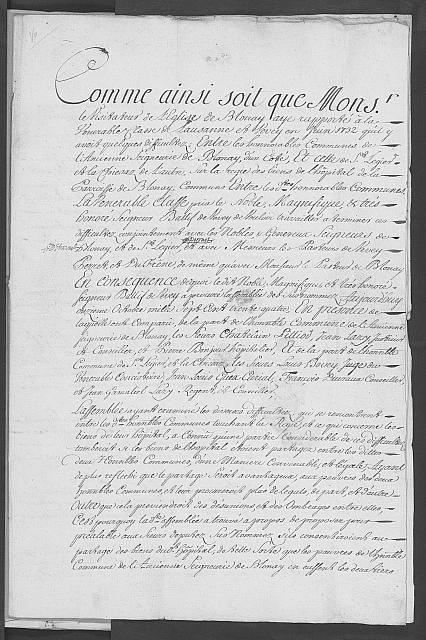 Comme ainsi soit que Mons.r
le Visitateur de l'Eglise de Blonay aye rapporté à la
Venerable Classe de Lausanne et Vevey en Juin 1732 qu'il y
avoit quelques difficultez; Entre les honnorables Communes de
l'Ancienne Seigneurie de Blonay, d'un Coté, Et Celle de S.t Legier
et la Chiesaz de l'autre, Sur la regie des biens de l'hôpital de la
Paroisse de Blonay, Communs Entre les dites honnorables Communes
La Venerable Classe pria le Noble, Magnifique, & tres
honoré Seigneur Ballif de Vevey de vouloir travailler à terminer ces
difficultez, conjointement avec les Nobles & Genereux Seigneurs de
Blonay, et de S.t Legier, et avec Messieurs les Pasteurs de Vevey
de même qu'avec Monsieur le Pasteur de Blonay
En consequence de quoi le dit Noble, Magnifique et tres honoré
Seigneur Ballif de Vevey a procuré l'assemblée des Surnommez Aujourd'huy
onzieme Octobre mille Sept Cent trente quatre, En presence de
laquelle ont Comparu, de la part de l'honnorable Commune de l'Ancienne
Seigneurie de Blonay, les Sieurs Chatelain Jean
et Conseiller, et Pierre Bonjour hospitalier, Et de la part de l'honnorable
Commune de S.t Legier, et la Chiesaz, les Sieurs Louis Juge du
Venerable Consistoire, Jean Louis François Ducraux Conseiller,
et Jean Gamaliel Regent, & Conseiller,
L'assemblée ayant examiné les diverses difficultez, qui se rencontrent
entre les dites honnorables Communes touchant la Regie et ce qui concerne les
biens de leur hôpital, a Connu qu'une partie Considerable de ces difficultez
tomberoit si les biens de l'hôpital etoient partagez entre les dittes
deux Honnorables Communes, d'une Maniere Convenable, et legale; Ayant
de plus reflechi que le partage seroit avantageux aux pauvres des deux
honnorables Communes, et leur procureroit plus de legats, de part, et d'autre
Outre que cela previendroit des désunions et des Ombrages entre elles,
C'est pourquoy la dite assemblée a trouvé à propos de proposer pour
prealable aux Sieurs deputez sus Nommez s'ils consentiroient au
partage des biens du dit hôpital, de telle Sorte que les pauvres de l'honnorable
Commune de l'Ancienne Seigneurie de Blonay en eussent les deux tiers